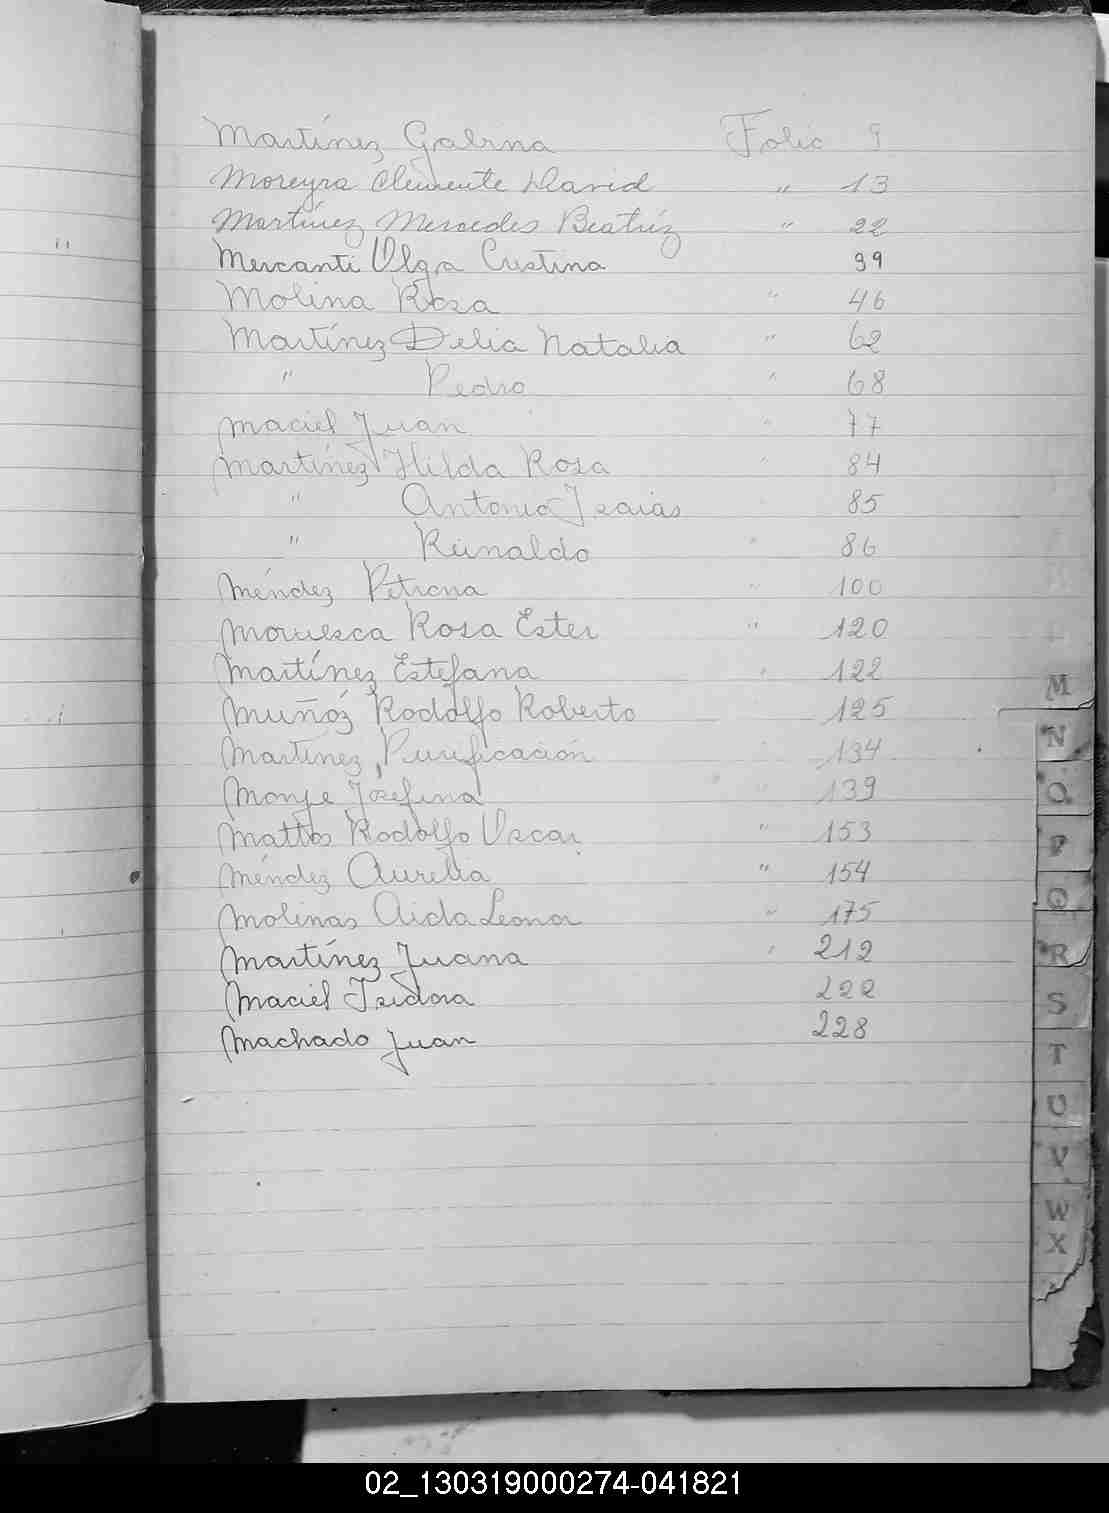 Martínez Galrna Folio 9
Moreyra Clemente David " 13
Martínez Mercedes Beatríz " 22
Mercanti Olga Cristina 39
Molina Rosa " 46
Martínez Delia Natalia " 62
" Pedro " 68
Maciel Juan " 77
Martínez Hilda Rosa " 84
" Antonio Isaias " 85
" Reinaldo " 86
Méndez Petrona " 100
Rosa Ester " 120
Martínez Estefana " 122
Muñóz Rodolfo Roberto 125
Martínez Purificación " 134
Monje Josefina " 139
Mattos Rodolfo Oscar " 153
Méndez Aurelia " 154
Molinas Aida Leonor " 175
Martínez Juana " 212
Maciel Isidora 222
Machado Juan 228
M
N
O
P
Q
R
S
T
U
V
W
X
02_130319000274-041821